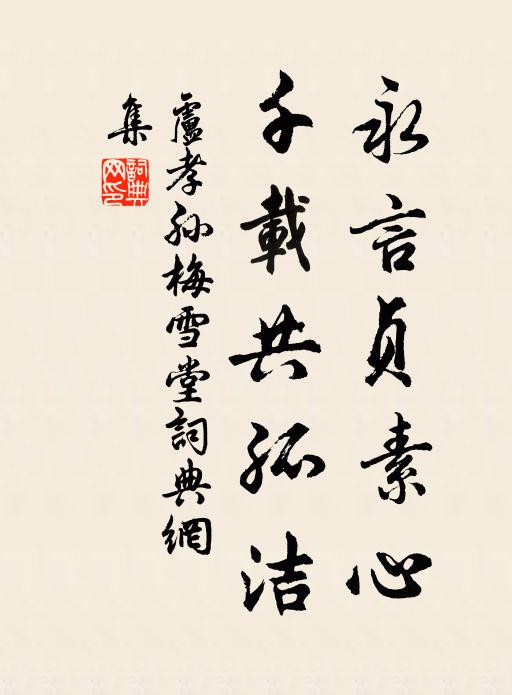 永言貞素心
千載共孤洁
盧孝孙梅雪堂詞典網
集
詞典網印